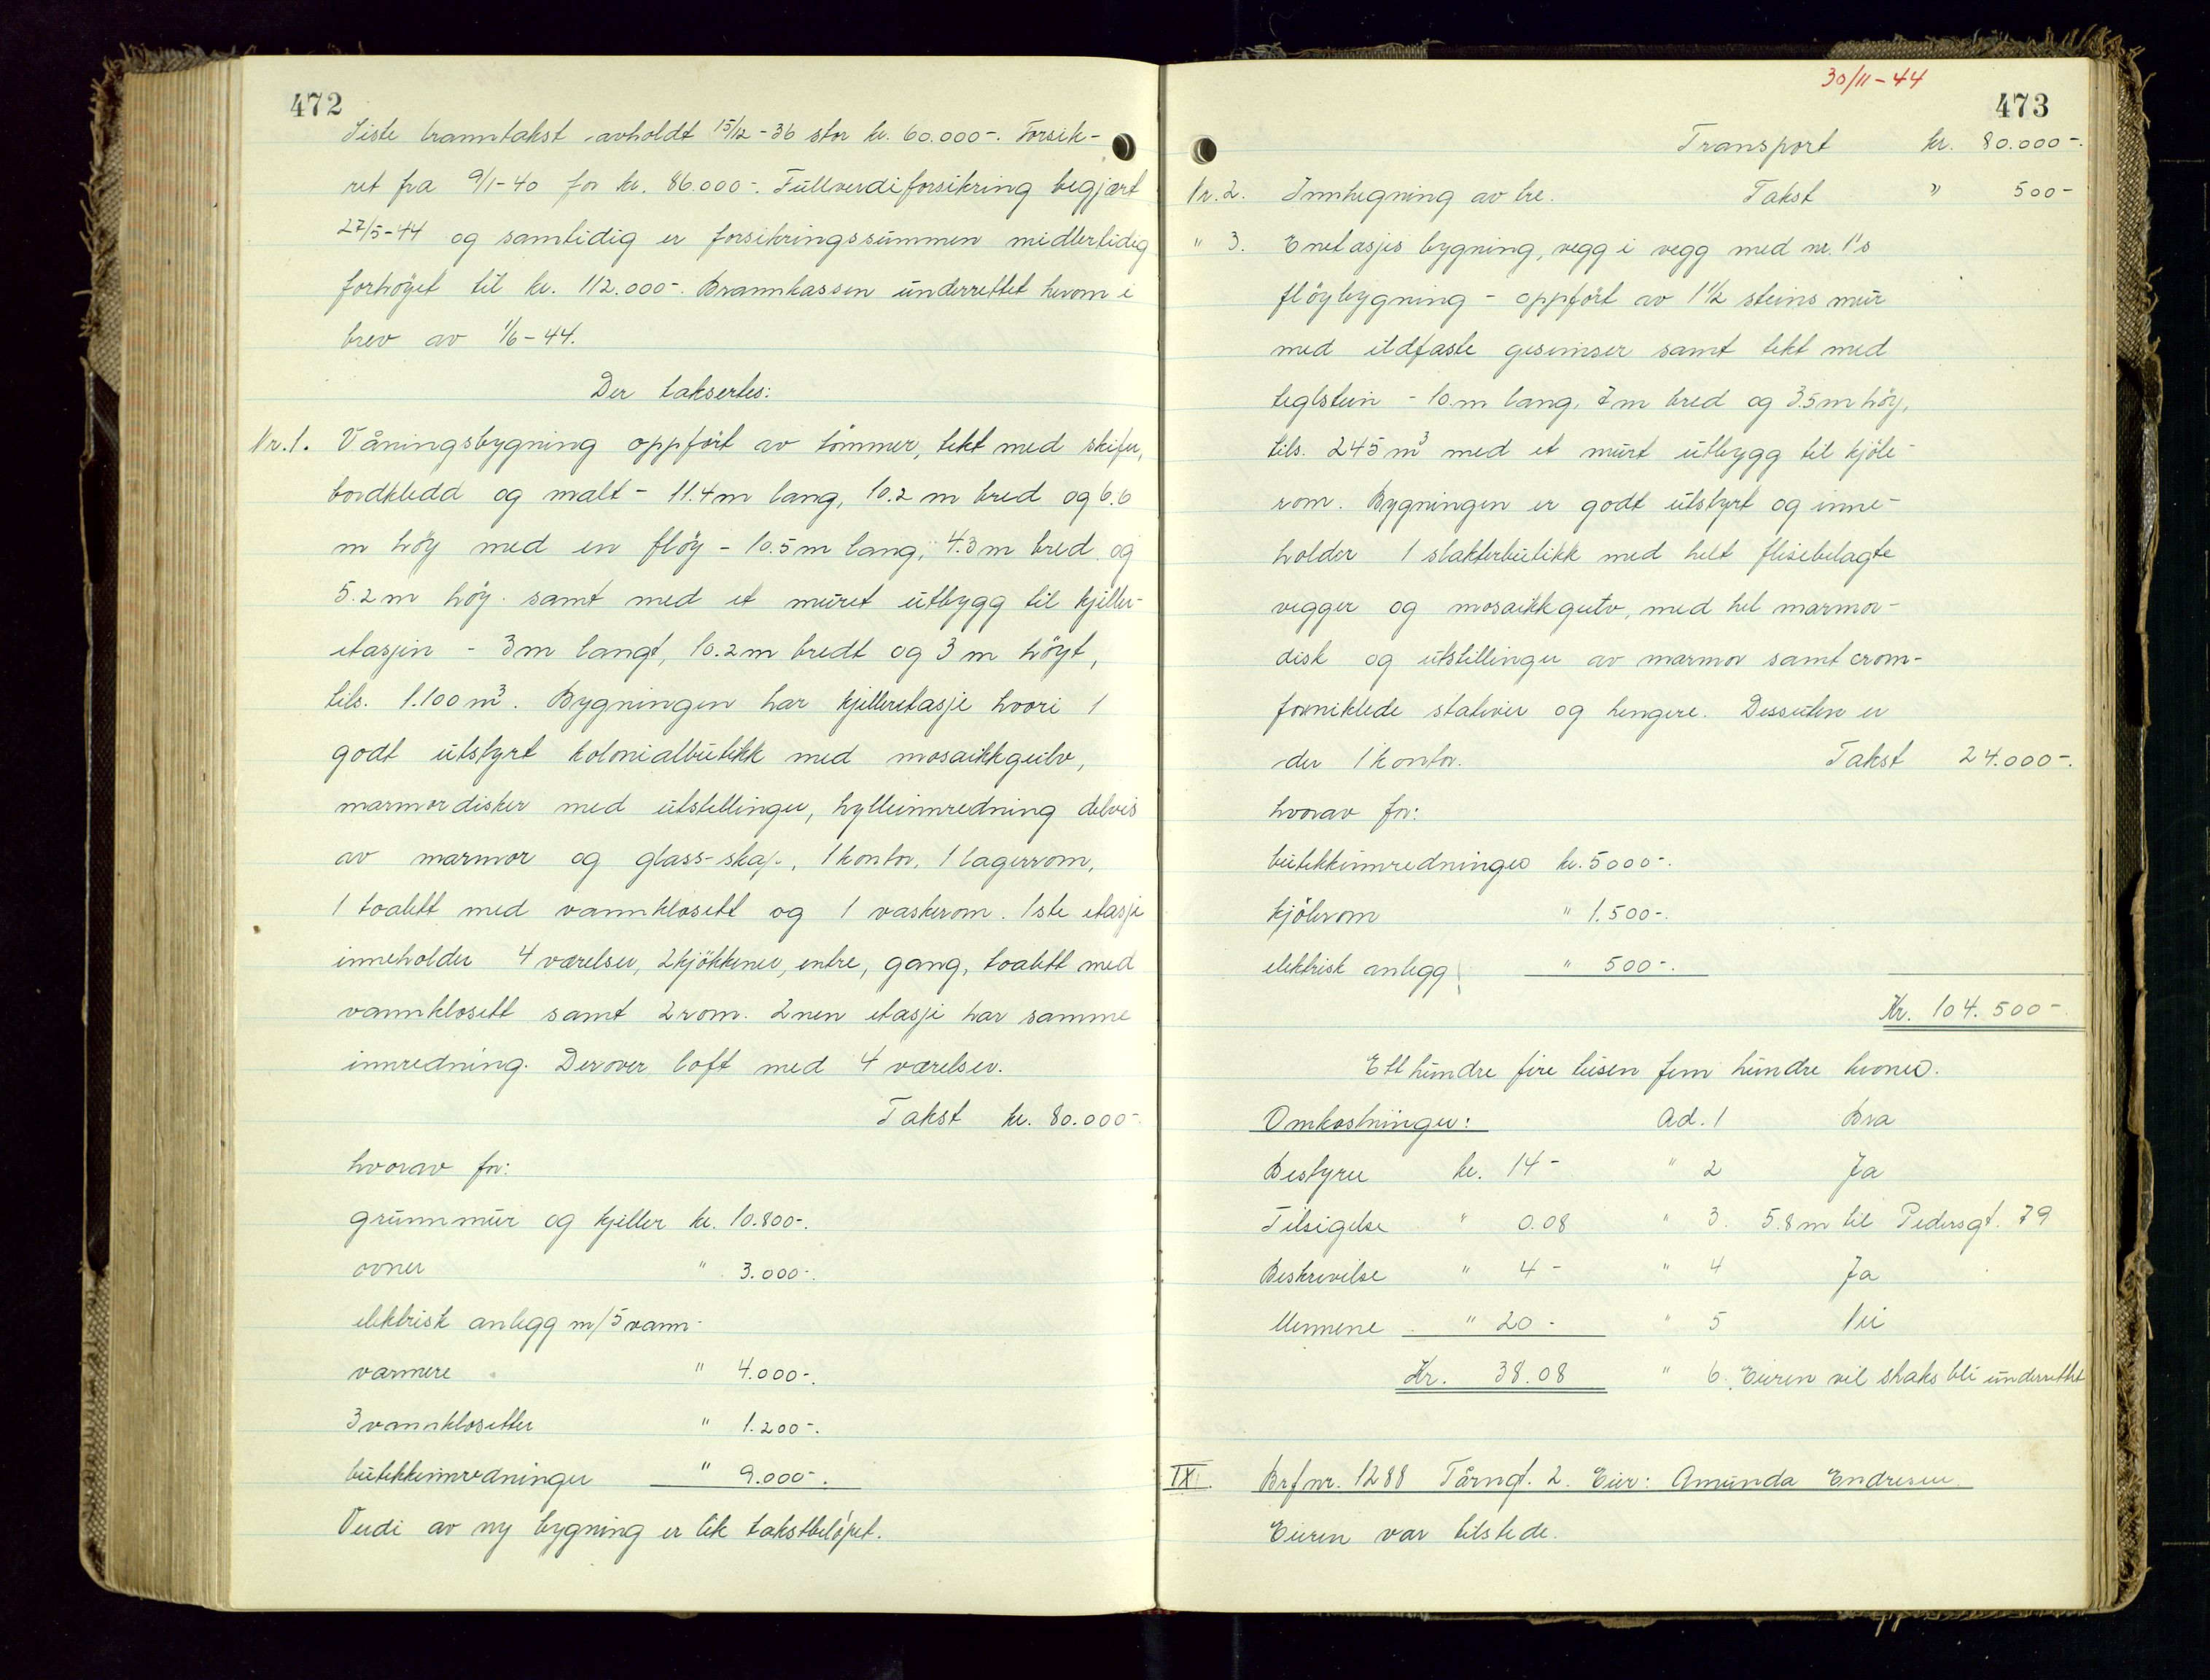 472
Siste branntakst avholdt 15/12-36 stor kr. 60.000-. Forsik-
ret fra 9/1-40 for kr. 86.000-. Fullverdiforsikring begjært
27/5-44 og samtidig er forsikringssummen midlertidig
forhöyet til kr. 112.000-. Brannkassen underrettet herom i
brev av 1/6-44.
Der taksertes:
Nr. 1. Våningsbygning oppfört av tömmer, tekt med skifer,
bordkledd og malt - 11.4 m lang, 10.2 m bred og 6.6
m höy med en flöy - 10.5 m lang, 4.3 m bred og
5.2 m höy samt med et muret utbygg til kjeller-
etasjen - 3 m langt, 10.2 m bredt og 3 m höyt,
tils. 1.100 m³. Bygningen har kjelleretasje hvori 1
godt utstyrt kolonialbutikk med mosaikkgulv,
marmordisker med utstillinger, hylleinnredning delvis
av marmor og glass-skap, 1 kontor, 1 lagerrom,
1 toalett med vannklosett og 1 vaskerom. 1ste etasje
inneholder 4 værelser, 2 kjökkener, entre, gang, toalett med
vannklosett samt 2 rom. 2nen etasje har samme
innredning. Derover loft med 4 værelser.
Takst kr. 80.000-
hvorav for:
grunnmur og kjeller kr. 10.800-.
ovner " 3.000-.
elektrisk anlegg m/5 vann-
varmere " 4.000-.
3 vannklosetter " 1.200-.
butikkinnredninger " 9.000-.
Verdi av ny bygning er lik takstbelöpet.
30/11-44
473
Transport kr. 80.000-.
Nr. 2. Innhegning av tre. Takst " 500-
" 3. Enetasjes bygning, vegg i vegg med nr. 1's
flöybygning - oppfört av 1 1/2 steins mur
med ildfaste gesimser samt tekt med
teglstein - 10 m lang, 7 m bred og 3.5 m höy,
tils. 245 m³ med et murt utbygg til kjöle-
rom. Bygningen er godt utstyrt og inne-
holder 1 slakterbutikk med helt flisebelagte
vegger og mosaikkgulv, med hel marmor-
disk og utstillinger av marmor samt crom-
forniklede stativer og hengere. Dessuten er
der 1 kontor. Takst 24.000-.
hvorav for:
butikkinnredninger kr. 5000-.
kjölerom " 1.500-.
elektrisk anlegg " 500-.
Kr. 104.500-
Ett hundre fire tusen fem hundre kroner.
Omkostninger: Ad. 1 Bra
Bestyrer kr. 14- " 2 Ja
Tilsigelse " 0.08 " 3. 5.8 m til Pedersgt. 79
Beskrivelse " 4- " 4 Ja
Mennene " 20- " 5 Nei
Kr. 38.08 " 6. Eieren vil straks bli underrettet
IX. Brf nr. 1288 Tårngt. 2. Eier: Amunda Endresen.
Eieren var tilstede.